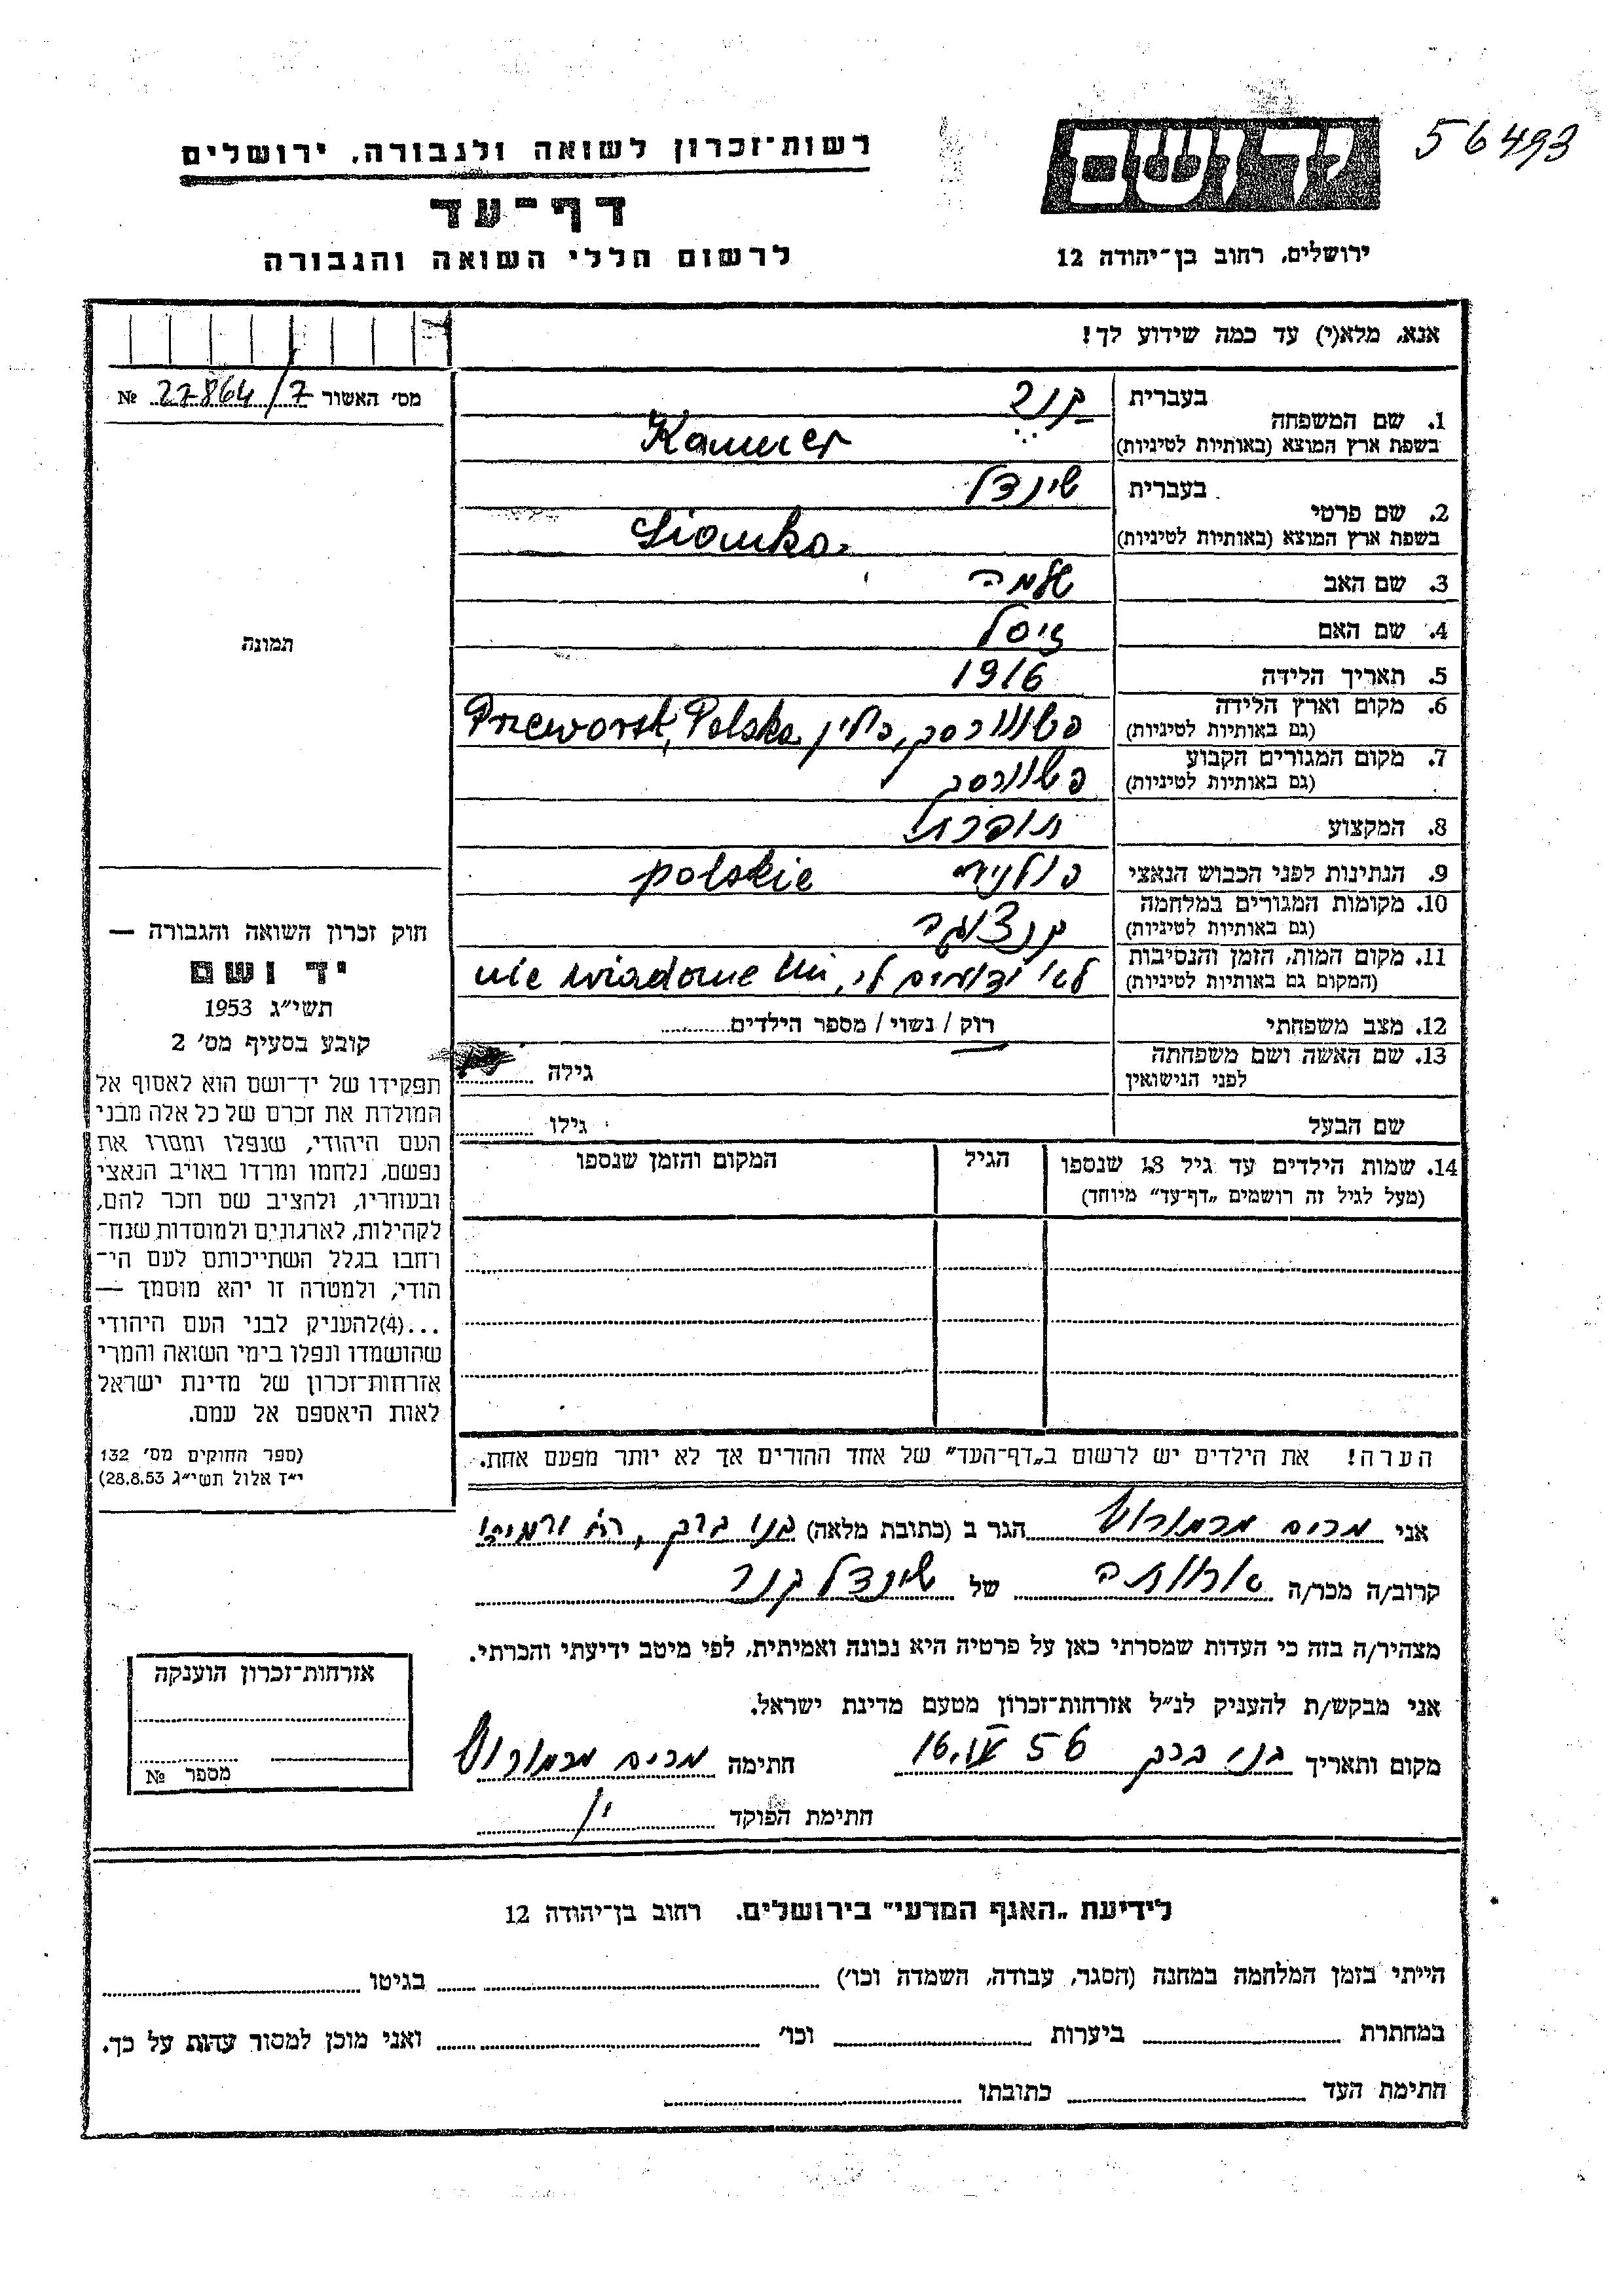 56493
יד ושם
רשות־זכרון לשואה ולגבורה, ירושלים
דף־עד
לרשום חללי השואה והגבורה
ירושלים, רחוב בן־יהודה 12
אנא, מלא(י) עד כמה שידוע לך!
מס׳ האשור 27864/7 №
תמונה
1. שם המשפחה
בעברית קנר
בשפת ארץ המוצא (באותיות לטיניות) Kanner
2. שם פרטי
בעברית שינדל
בשפת ארץ המוצא (באותיות לטיניות)
3. שם האב שלמה
4. שם האם זיסל
5. תאריך הלידה 1916
6. מקום וארץ הלידה
(גם באותיות לטיניות) פשוורסק, פולין Przeworsk, Polska
7. מקום המגורים הקבוע
(גם באותיות לטיניות) פשוורסק
8. המקצוע תופרת
9. הנתינות לפני הכבוש הנאצי פולנית polskie
10. מקומות המגורים במלחמה
(גם באותיות לטיניות)
11. מקום המות, הזמן והנסיבות
(המקום גם באותיות לטיניות) לא ידועים לי, nie wiadome mi
12. מצב משפחתי רוק / נשוי / מספר הילדים
13. שם האשה ושם משפחתה
לפני הנישואין גילה
שם הבעל גילו
14. שמות הילדים עד גיל 18 שנספו
(מעל לגיל זה רושמים „דף־עד״ מיוחד)
הגיל
המקום והזמן שנספו
חוק זכרון השואה והגבורה —
יד ושם
תשי״ג 1953
קובע בסעיף מס׳ 2
תפקידו של יד־ושם הוא לאסוף אל
המולדת את זכרם של כל אלה מבני
העם היהודי, שנפלו ומסרו את
נפשם, נלחמו ומרדו באויב הנאצי
ובעוזריו, ולהציב שם וזכר להם,
לקהילות, לארגונים ולמוסדות שנח־
רחבו בגלל השתייכותם לעם הי־
הודי, ולמטרה זו יהא מוסמך —
...(4)להעניק לבני העם היהודי
שהושמדו ונפלו בימי השואה והמרי
אזרחות־זכרון של מדינת ישראל
לאות היאספם אל עמם.
(ספר החוקים מס׳ 132
י״ד אלול תשי״ג 28.8.53)
הערה! את הילדים יש לרשום ב„דף־העד״ של אחד ההורים אך לא יותר מפעם אחת.
אני מרים הגר ב (כתובת מלאה) בני ברק,
קרוב/ה מכר/ה של שינדל קנר
מצהיר/ה בזה כי העדות שמסרתי כאן על פרטיה היא נכונה ואמיתית, לפי מיטב ידיעתי והכרתי.
אני מבקש/ת להעניק לנ״ל אזרחות־זכרון מטעם מדינת ישראל.
מקום ותאריך בני ברק 56 חתימה מרים
חתימת הפוקד
אזרחות־זכרון הוענקה
מספר №
לידיעת „האגף המדעי״ בירושלים. רחוב בן־יהודה 12
הייתי בזמן המלחמה במחנה (הסגר, עבודה, השמדה וכו׳) בגיטו
במחתרת ביערות וכו׳ ואני מוכן למסור עדות על כך.
חתימת העד כתובתו